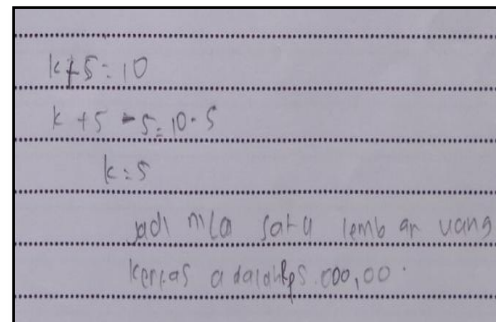 k+5=10
k+5-5=10-5
k=5
jadi nila satu lembar uang
kertas adalah Rp5.000,00.